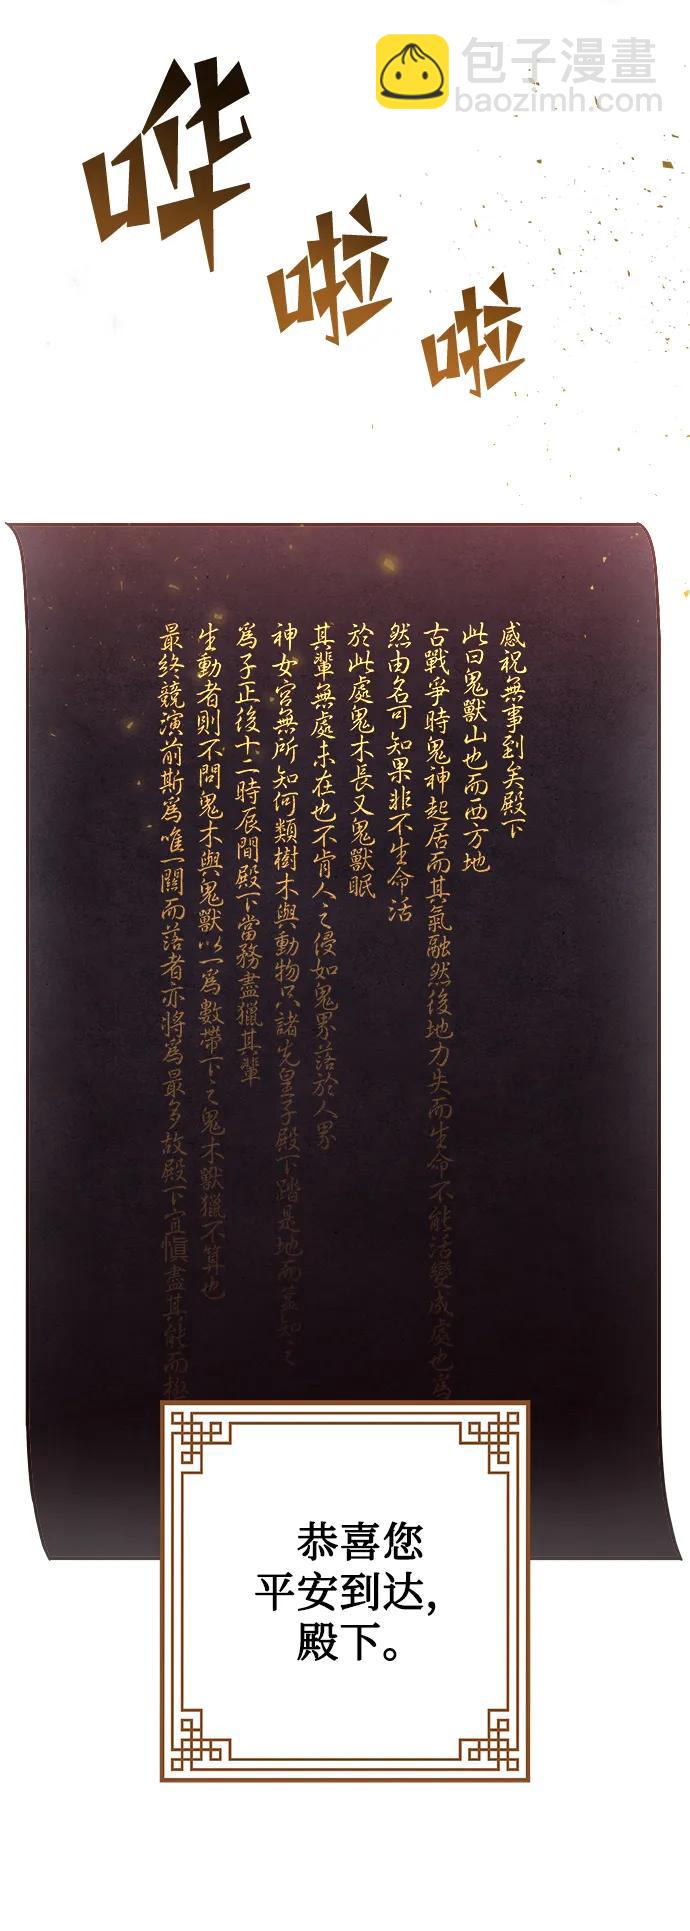 包子漫畫
baozimh.com
哗
啦
啦
感祝無事到矣殿下
此曰鬼獸山也而西方地
古戰爭時鬼神起居而其氣融然後地力失而生命不能活變成處也爲
然由名可知果非不生命活
於此處鬼木長又鬼獸眠
其輩無處未在也不肯人之侵如鬼界落於人界
神女宮無所知何類樹木與動物只諸先皇子殿下踏是地而蓋知之
爲子正後十二時辰間殿下當務盡獵其輩
生動者則不問鬼木與鬼獸以一爲數帶下之鬼木獸獵不算也
最終競演前斯爲唯一關而落者亦將爲最多故殿下宜愼盡其能而極
恭喜您
平安到达,
殿下。